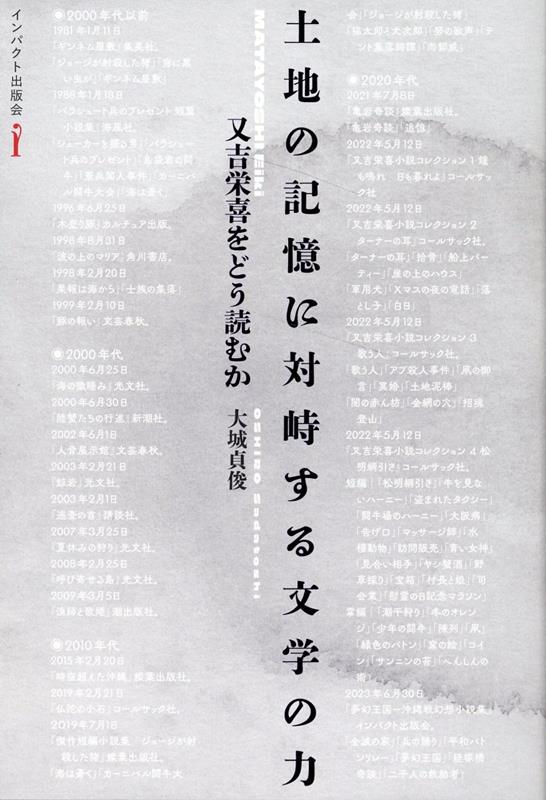 土地の記憶に対峙する文学の力
又吉栄喜をどう読むか
大城貞俊
MATAYOSHI Eiki
OSHIRO Sadatoshi
インパクト出版会
◉2000年代以前
1981年1月11日
『ギンネム屋敷』集英社。
「ジョージが射殺した猪」「窓に黒
い虫が」「ギンネム屋敷」
1988年1月18日
『パラシュート兵のプレゼント 短篇
小説集』海風社。
1996年6月25日
『木登り豚』カルチュア出版。
1998年8月31日
『波の上のマリア』角川書店。
1998年2月20日
『果報は海から』「士族の集落」
1999年2月10日
『豚の報い』文芸春秋。
◉2000年代
2000年6月25日
『海の微睡み』光文社。
2000年6月30日
『陸蟹たちの行進』新潮社。
2002年6月1日
『人骨展示館』文芸春秋。
2003年2月21日
『鯨岩』光文社。
2003年2月1日
『巡査の首』講談社。
2007年3月25日
『夏休みの狩り』光文社。
2008年2月25日
『呼び寄せる島』光文社。
2009年3月5日
『漁師と歌姫』潮出版社。
◉2010年代
2015年2月20日
『時空超えた沖縄』燦葉出版社。
2019年2月21日
『仏陀の小石』コールサック社。
2019年7月1日
『傑作短編小説集 ジョージが射
殺した猪』燦葉出版社。
「海は蒼く」「カーニバル闘牛大
会」「ジョージが射殺した猪」
「猫太郎と犬次郎」「努の歌声」「テ
ント集落奇譚」「肉都綺」
◉2020年代
2021年7月8日
『亀岩奇談』燦葉出版社。
「亀岩奇談」「追憶」
2022年5月12日
『又吉栄喜小説コレクション1 鐘
も鳴れ 日も暮れよ』コールサッ
ク社
2022年5月12日
『又吉栄喜小説コレクション2
ターナーの耳』コールサック社。
「ターナーの耳」「拾骨」「船上パー
ティー」「崖の上のハウス」
「軍用犬」「Xマスの夜の電話」「落
とし子」「白日」
2022年5月12日
『又吉栄喜小説コレクション3
歌う人』コールサック社。
「歌う人」「アブ殺人事件」「凧の御
言」「冥婚」「土地泥棒」
「闇の赤ん坊」「金網の穴」「招魂
登山」
2022年5月12日
『又吉栄喜小説コレクション4 松
明綱引き』コールサック社。
短編：「松明綱引き」「牛を見な
いハーニー」「盗まれたタクシー」
「闘牛場のハーニー」「大阪病」
「告げ口」「マッサージ師」「水
棲動物」「訪問販売」「青い女神」
「見合い相手」「ヤシ蟹酒」「野
草採り」「宝箱」「村長と娘」「司
会業」「慰霊の日記念マラソン」
掌編：「潮干狩り」「冬のオレン
ジ」「少年の闘牛」「陳列」「凧」
「緑色のバトン」「窯の絵」「コイ
ン」「サンニンの苔」「へんしんの
術」
2023年6月30日
『夢幻王国―沖縄戦幻想小説集』
インパクト出版会。
「全滅の家」「兵の踊り」「平和バト
ンリレー」「夢幻王国」「経塚橋
奇談」「二千人の救助者」